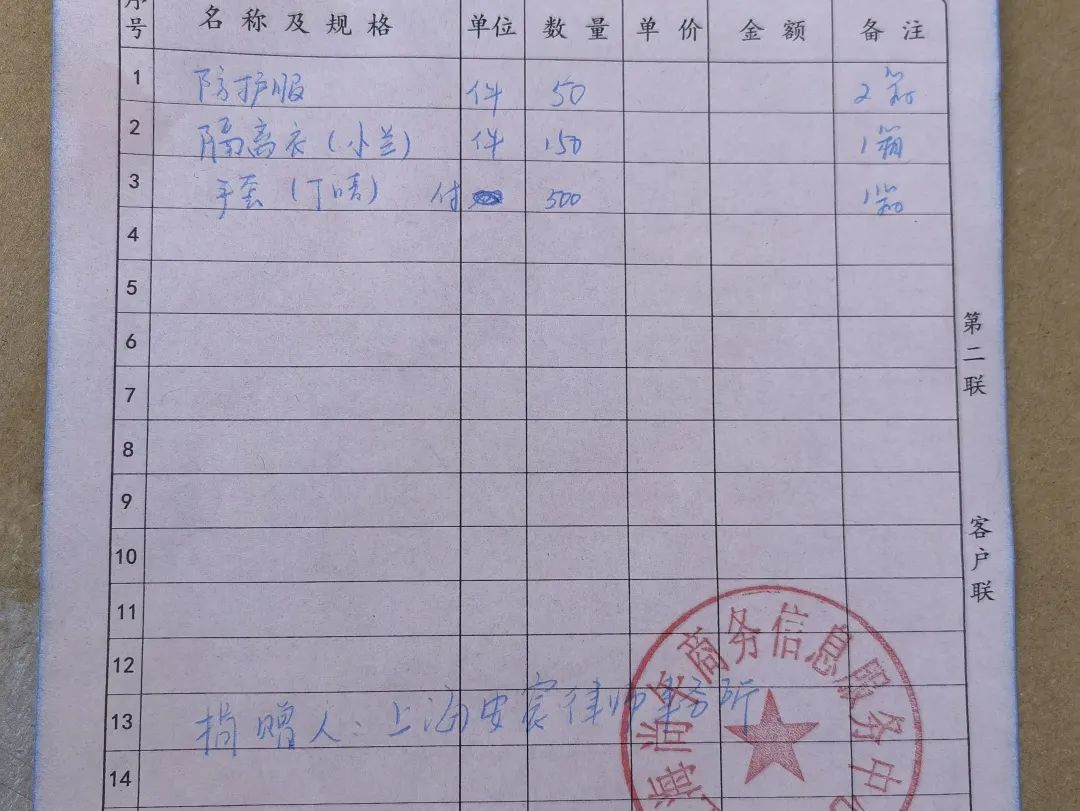 序号 名称及规格 单位 数量 单价 金额 备注
1 防护服 件 50 2箱
2 隔离衣(小兰) 件 150 1箱
3 手套(丁晴) 付 500 1箱
4
5
6
7
8
9
10
11
12
13 捐赠人:上海安宸律师事务所
14
第二联
客户联
海尚 商务信息服务中